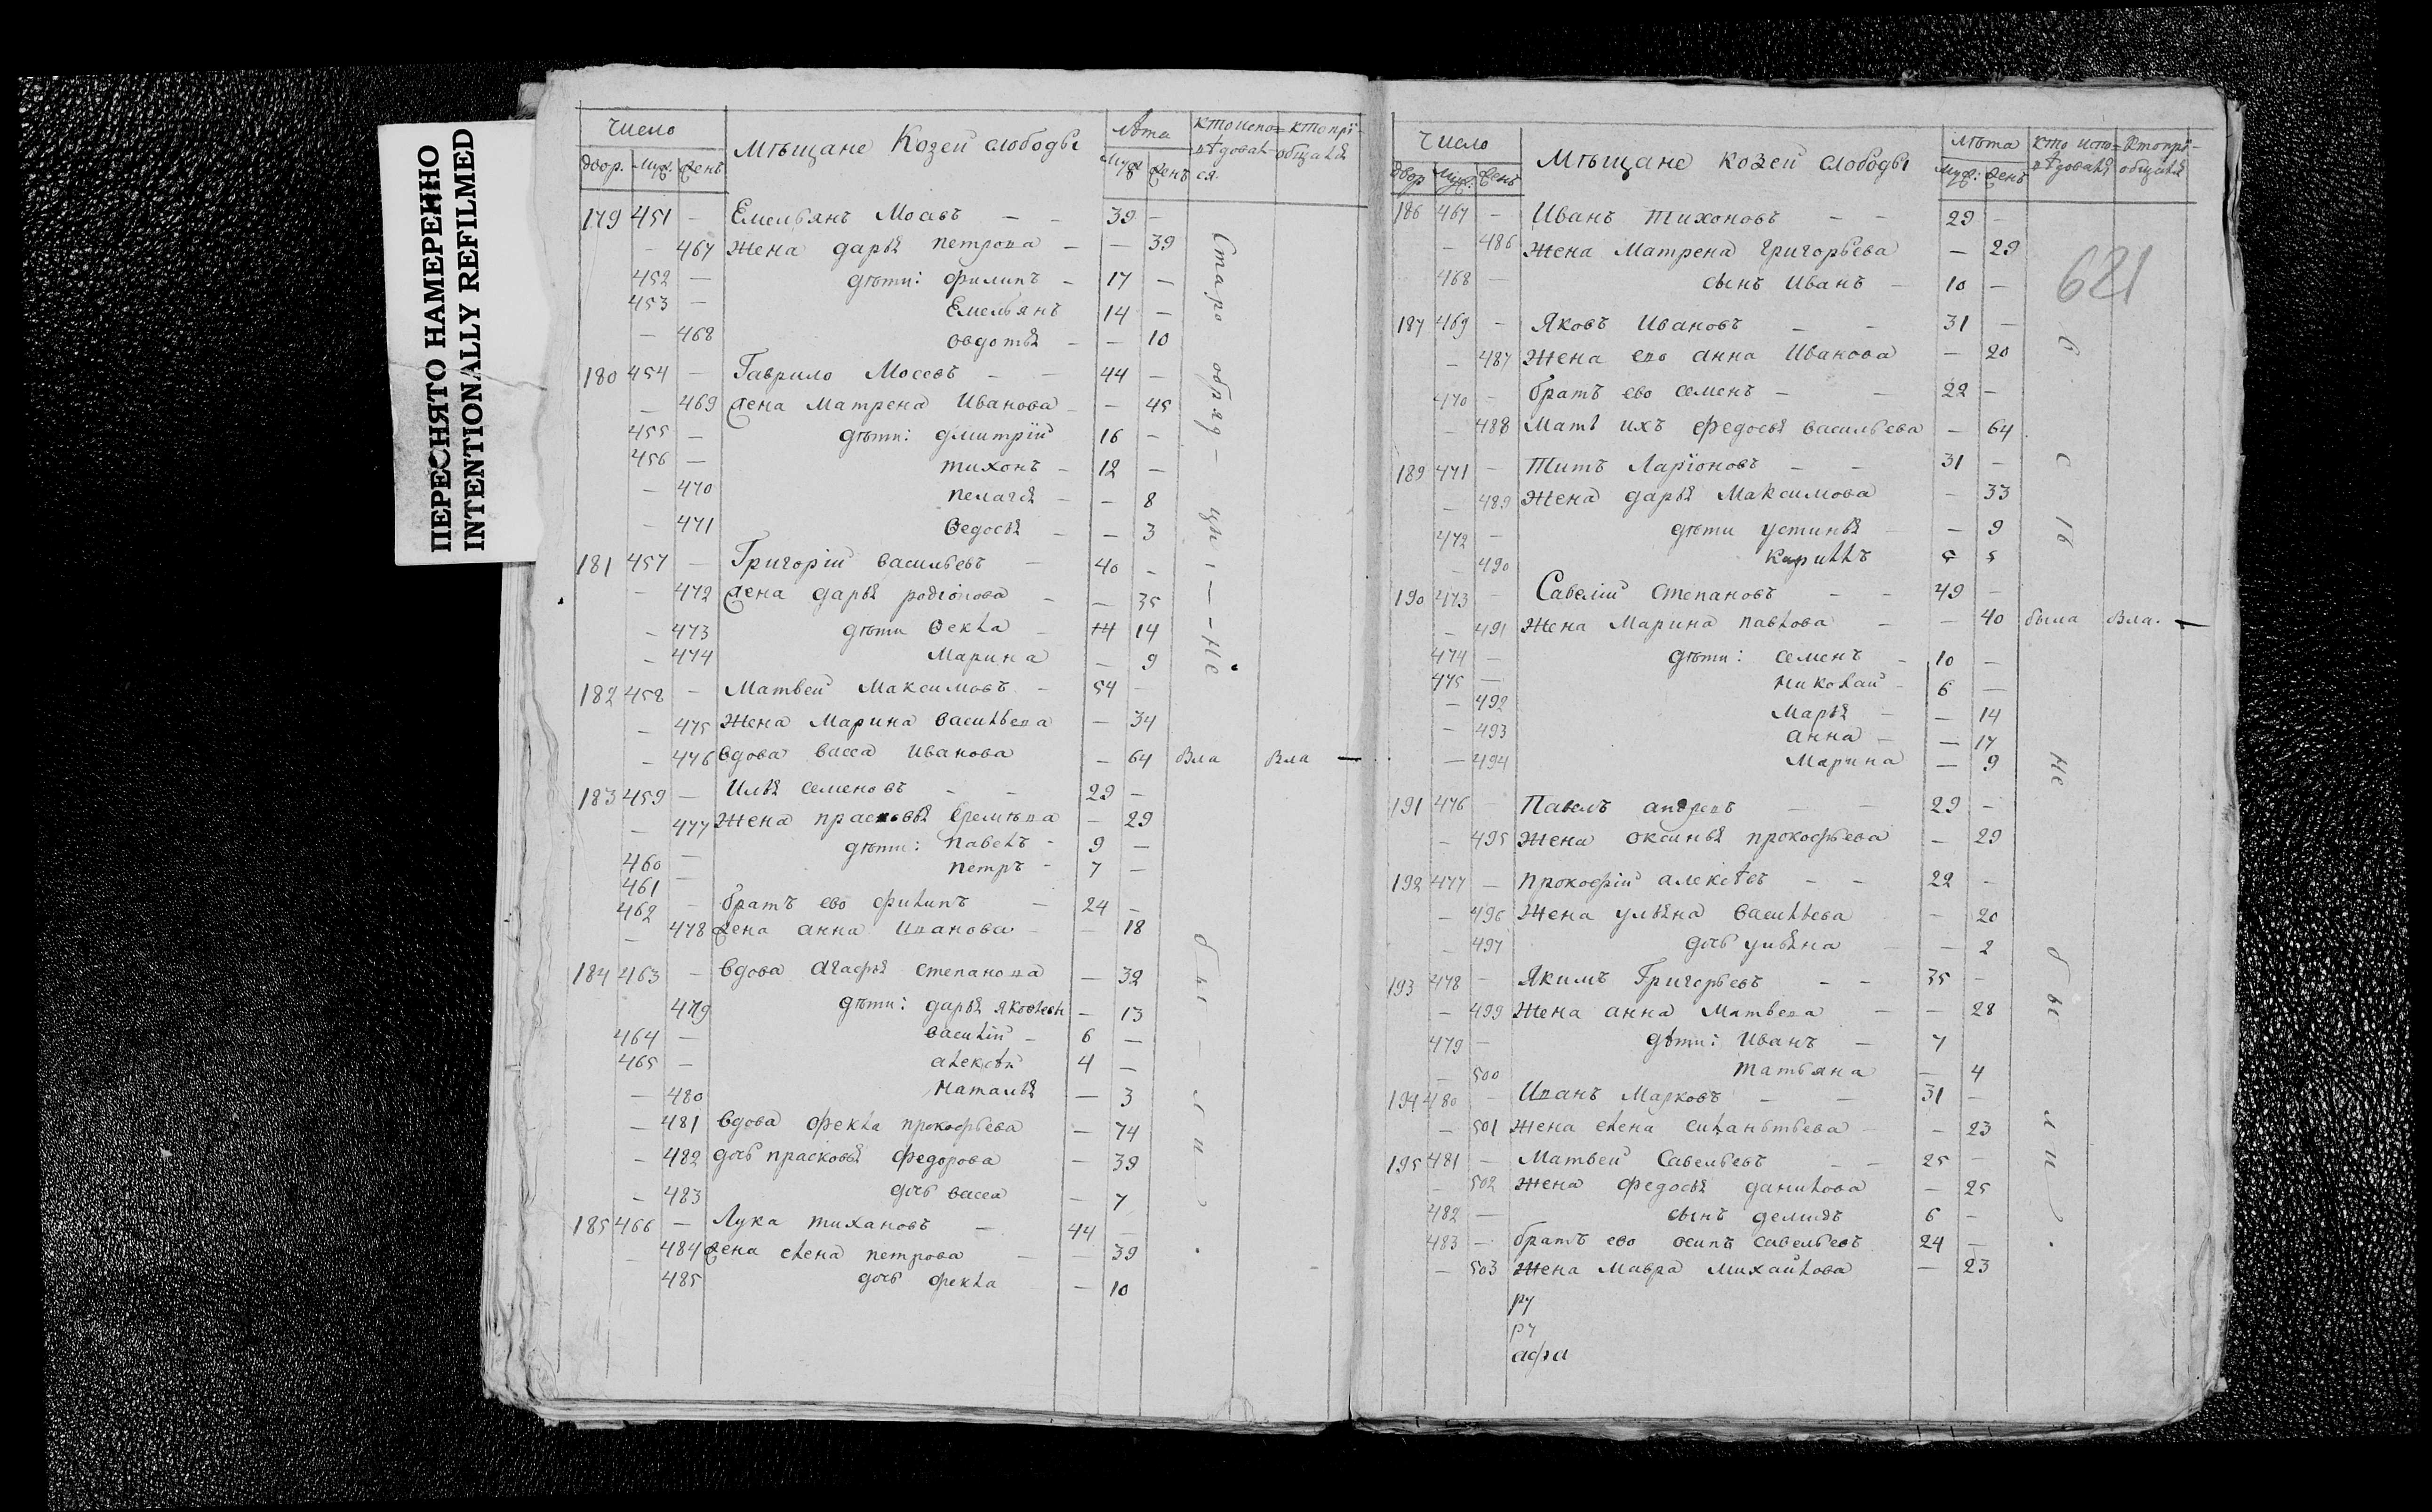 ПЕРЕСНЯТО НАМЕРЕННО
INTENTIONALLY REFILMED
Число Мѣщане Козей слободы лѣта кто испо= кто прі-
двор. муж. женъ муж женъ вѣдовал- общался
ся
179 451 – Емельянъ Мосевъ – – 39 –
– 467 жена дарья петрова – – 39
452 – дѣти: филипъ – 17 –
453 – Емельянъ 14 –
– 468 овдотья – – 10
180 454 – Гаврило Мосевъ – – 44 –
– 469 жена Матрена Иванова – – 45
455 – дѣти: дмитрій 16 –
456 – тихонъ – 12 –
– 470 пелагея – – 8
– 471 Ѳедосья – – 3
181 457 – Григорій васильевъ – 40 –
– 472 жена дарья родіонова – – 35
– 473 дѣти Ѳекла – 14 14
– 474 Марина – 9
182 458 – Матвей Максимовъ – 54 –
– 475 жена Марина васильева – 34
– 476 вдова васса Иванова – 64 Вла Вла –
183 459 – Илья семеновъ – – 29 –
– 477 жена прасковья Еремѣева – 29
460 – дѣти: павелъ – 9 –
461 – петръ – 7 –
462 – братъ ево филипъ – 24 –
– 478 жена анна Иванова – – 18
184 463 – вдова агафья степанова – 32
479 дѣти: дарья яковлевн – 13
464 – василій – 6 –
465 – алексѣй 4 –
– 480 наталья – 3
– 481 вдова фекла прокофьева – 74
– 482 дочь прасковья федорова – 39
– 483 дочь васса – 7
185 466 – Лука тихановъ – 44 –
– 484 жена елена петрова – – 39
485 дочь фекла – 10
Старо обряд – цы – – – не
были
Число Мѣщане козей слободы лѣта кто испо= кто прі-
двор муж: женъ муж: женъ вѣдовался общался
621
186 467 – Иванъ тихоновъ – – 29 –
– 486 жена Матрена григорьева – 29
468 – сынъ Иванъ – 10 –
187 469 – Яковъ Ивановъ – – 31 –
– 487 жена ево анна Иванова – 20
470 – братъ ево семенъ – – 22 –
– 488 Мать ихъ федосья васильева – 64
189 471 – Титъ Ларіоновъ – – 31 –
– 489 жена дарья Максимова – 33
472 – дѣти устинья – – 9
– 490 кирилъ 5 5
190 473 – Савелій степановъ – – 49 –
– 491 жена Марина павлова – – 40 была Вла. –
474 – дѣти: семенъ – 10 –
475 – николай – 6 –
– 492 Марья – – 14
– 493 анна – – 17
– 494 Марина – 9
191 476 – Павелъ андревъ – – 29 –
– 495 жена оксинья прокофьева – 29
192 477 – прокофій алексѣевъ – – 22 –
– 496 жена ульяна васильева – 20
– 497 дочь ульяна – – 2
193 478 – Якимъ Григорьевъ – – 35 –
– 499 жена анна Матвева – – 28
479 – дѣти: Иванъ – 7
– 500 татьяна – 4
194 480 – Иванъ Марковъ – – 31 –
– 501 жена елена силантьева – – 23
195 481 – Матвей Савельевъ – – 25 –
– 502 жена федосья данилова – 25
482 – сынъ демидъ 6 –
483 – братъ ево осипъ савельевъ 24 –
– 503 жена Мавра михайлова – 23
ру
ру
афа
не
были